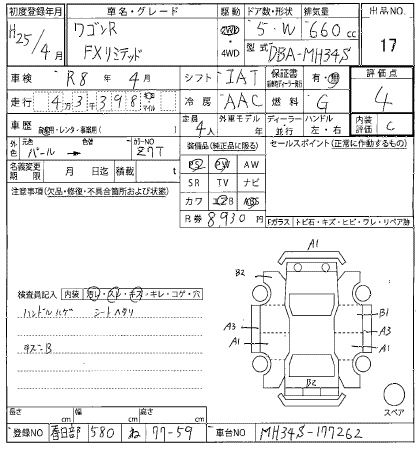 初度登録年月 車名・グレード 駆動 ドア数・形状 排気量 出品NO.
H25/4月 ワゴンR 2WD・4WD 5・W 660cc 17
FXリミテッド 型式 DBA-MH34S
車検 R8年4月 シフト IAT 保証書 有・無 評価点
走行 43398 キロ・マイル 冷房 AAC 燃料 G 4
車歴 自家用・レンタ・事業用( ) 定員 4人 外車モデル 年 ディーラー・並行 ハンドル 左・右 内装評価 C
外色 元色 パール → 色替 カラーNO Z7T 装備品(純正品に限る) セールスポイント(正常に作動するもの)
名義変更期限 月 日迄 積載 t PS PW AW
注意事項(欠品・修復・不具合箇所および状態) SR TV ナビ
カワ エアB ABS
R券 8,930円 Fガラス トビ石・キズ・ヒビ・ワレ・リペア跡
A1
B2
検査員記入 内装 汚れ・スレ・キズ・キレ・コゲ・穴 B1
ハンドルハゲ シートヘタリ A3 A3
A1 A1
タズニB
B2
スペア
長さ cm 幅 cm 高さ cm
登録NO 春日部 580 ね 77-59 車台NO MH34S-177262